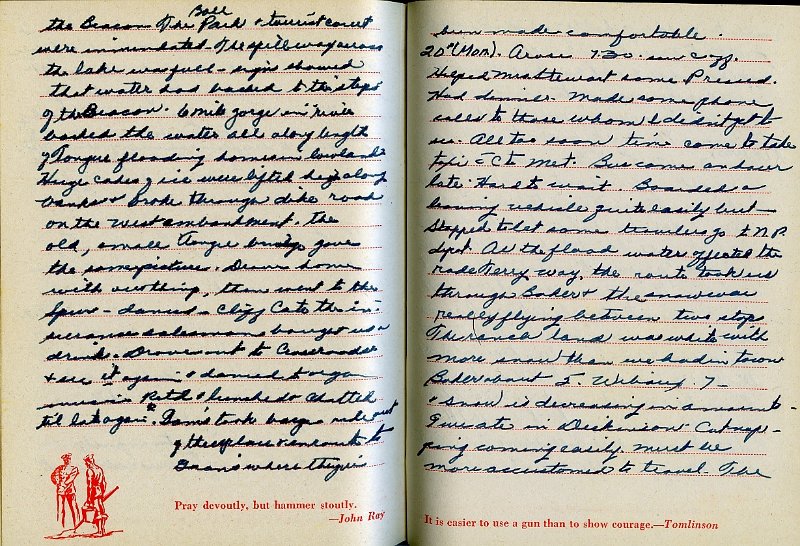 Ball
the Beacon. The Park & tourist court
were inundated. The spillway across
the lake was full - signs showed
that water had backed to the steps
of the Beacon. 6 mile gorge in river
backed the water all along length
of Tongue flooding homes in lowlands
Huge cakes of ice were lifted high along
banks & broke through dike road
on the west embankment. The
old, small Tongue bridge gave
the same picture. Down home
with nothing, then went to the
Spur - danced - Cliff Cato the in-
surance salesman bought us a
drink. Drove out to Crossroads
& see it again & danced to organ
music. Retd & lunched & chatted
til late again & Dan's took
of the place & enroute to
Dean's where they're
Pray devoutly, but hammer stoutly.
—John Ray
been made comfortable.
20th (Mon). Arose 7:30. saw
Helped Mrs Stewart some. Pressed.
Had dinner. Made some phone
calls to those whom I didn't get to
see. All too soon time came to take
taxi to Met. Bus came an hour
late. Hard to wait. Boarded a
leaving vehicle quite easily but
stopped to let some travelers go to N.P.
depot. As the flood water affected the
road Terry way, the route took us
through Baker & the snow was
really flying between two stops
The ranch land was white with
more snow than we had in town
Baker about 5. Wibaux 7 -
& snow is decreasing in amount.
I ate in Dickinson. Catnap-
ping coming easily. must be
more accustomed to travel. The
It is easier to use a gun than to show courage.—Tomlinson